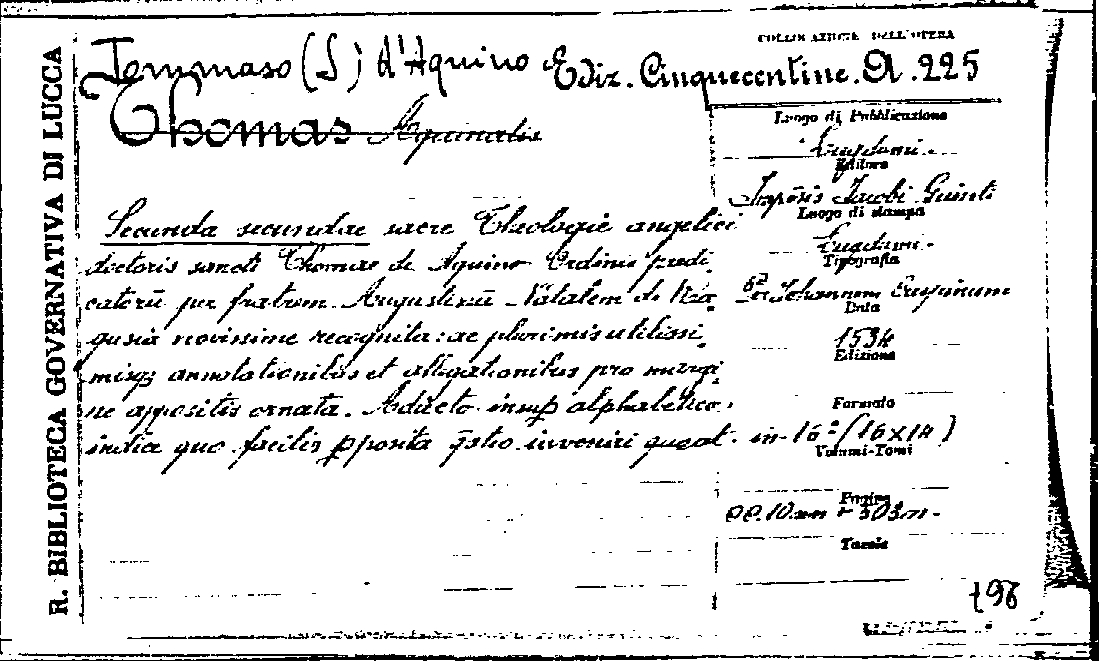 R. BIBLIOTECA GOVERNATIVA DI LUCCA
COLLOCAZIONE DELL'OPERA
Tommaso (S) d'Aquino Ediz. Cinquecentine. A. 225
Thomas Aquinatis
Luogo di Pubblicazione
Lugduni.
Editore
Impēsis Jacobi Giunti
Luogo di stampa
Lugduni.
Tipografia
Per Johannem Crispinum
Data
1534
Edizione
Formato
in-16° (16x14)
Volumi-Tomi
Pagine
cc. 10 nn + 303 n.
Tavole
Secunda secundae sacre Theologie angelici
doctoris sancti Thomae de Aquino Ordinis predi,
catorū per fratrem Augustinū Natalem de Ra,
gusia novissime recognita: ac plurimis utilissi,
misqz annotationibus et allegationibus pro margi,
ne appositis ornata. Adiecto insup alphabetico
indice quo facilis pposita q̄stio inveniri queat.
196